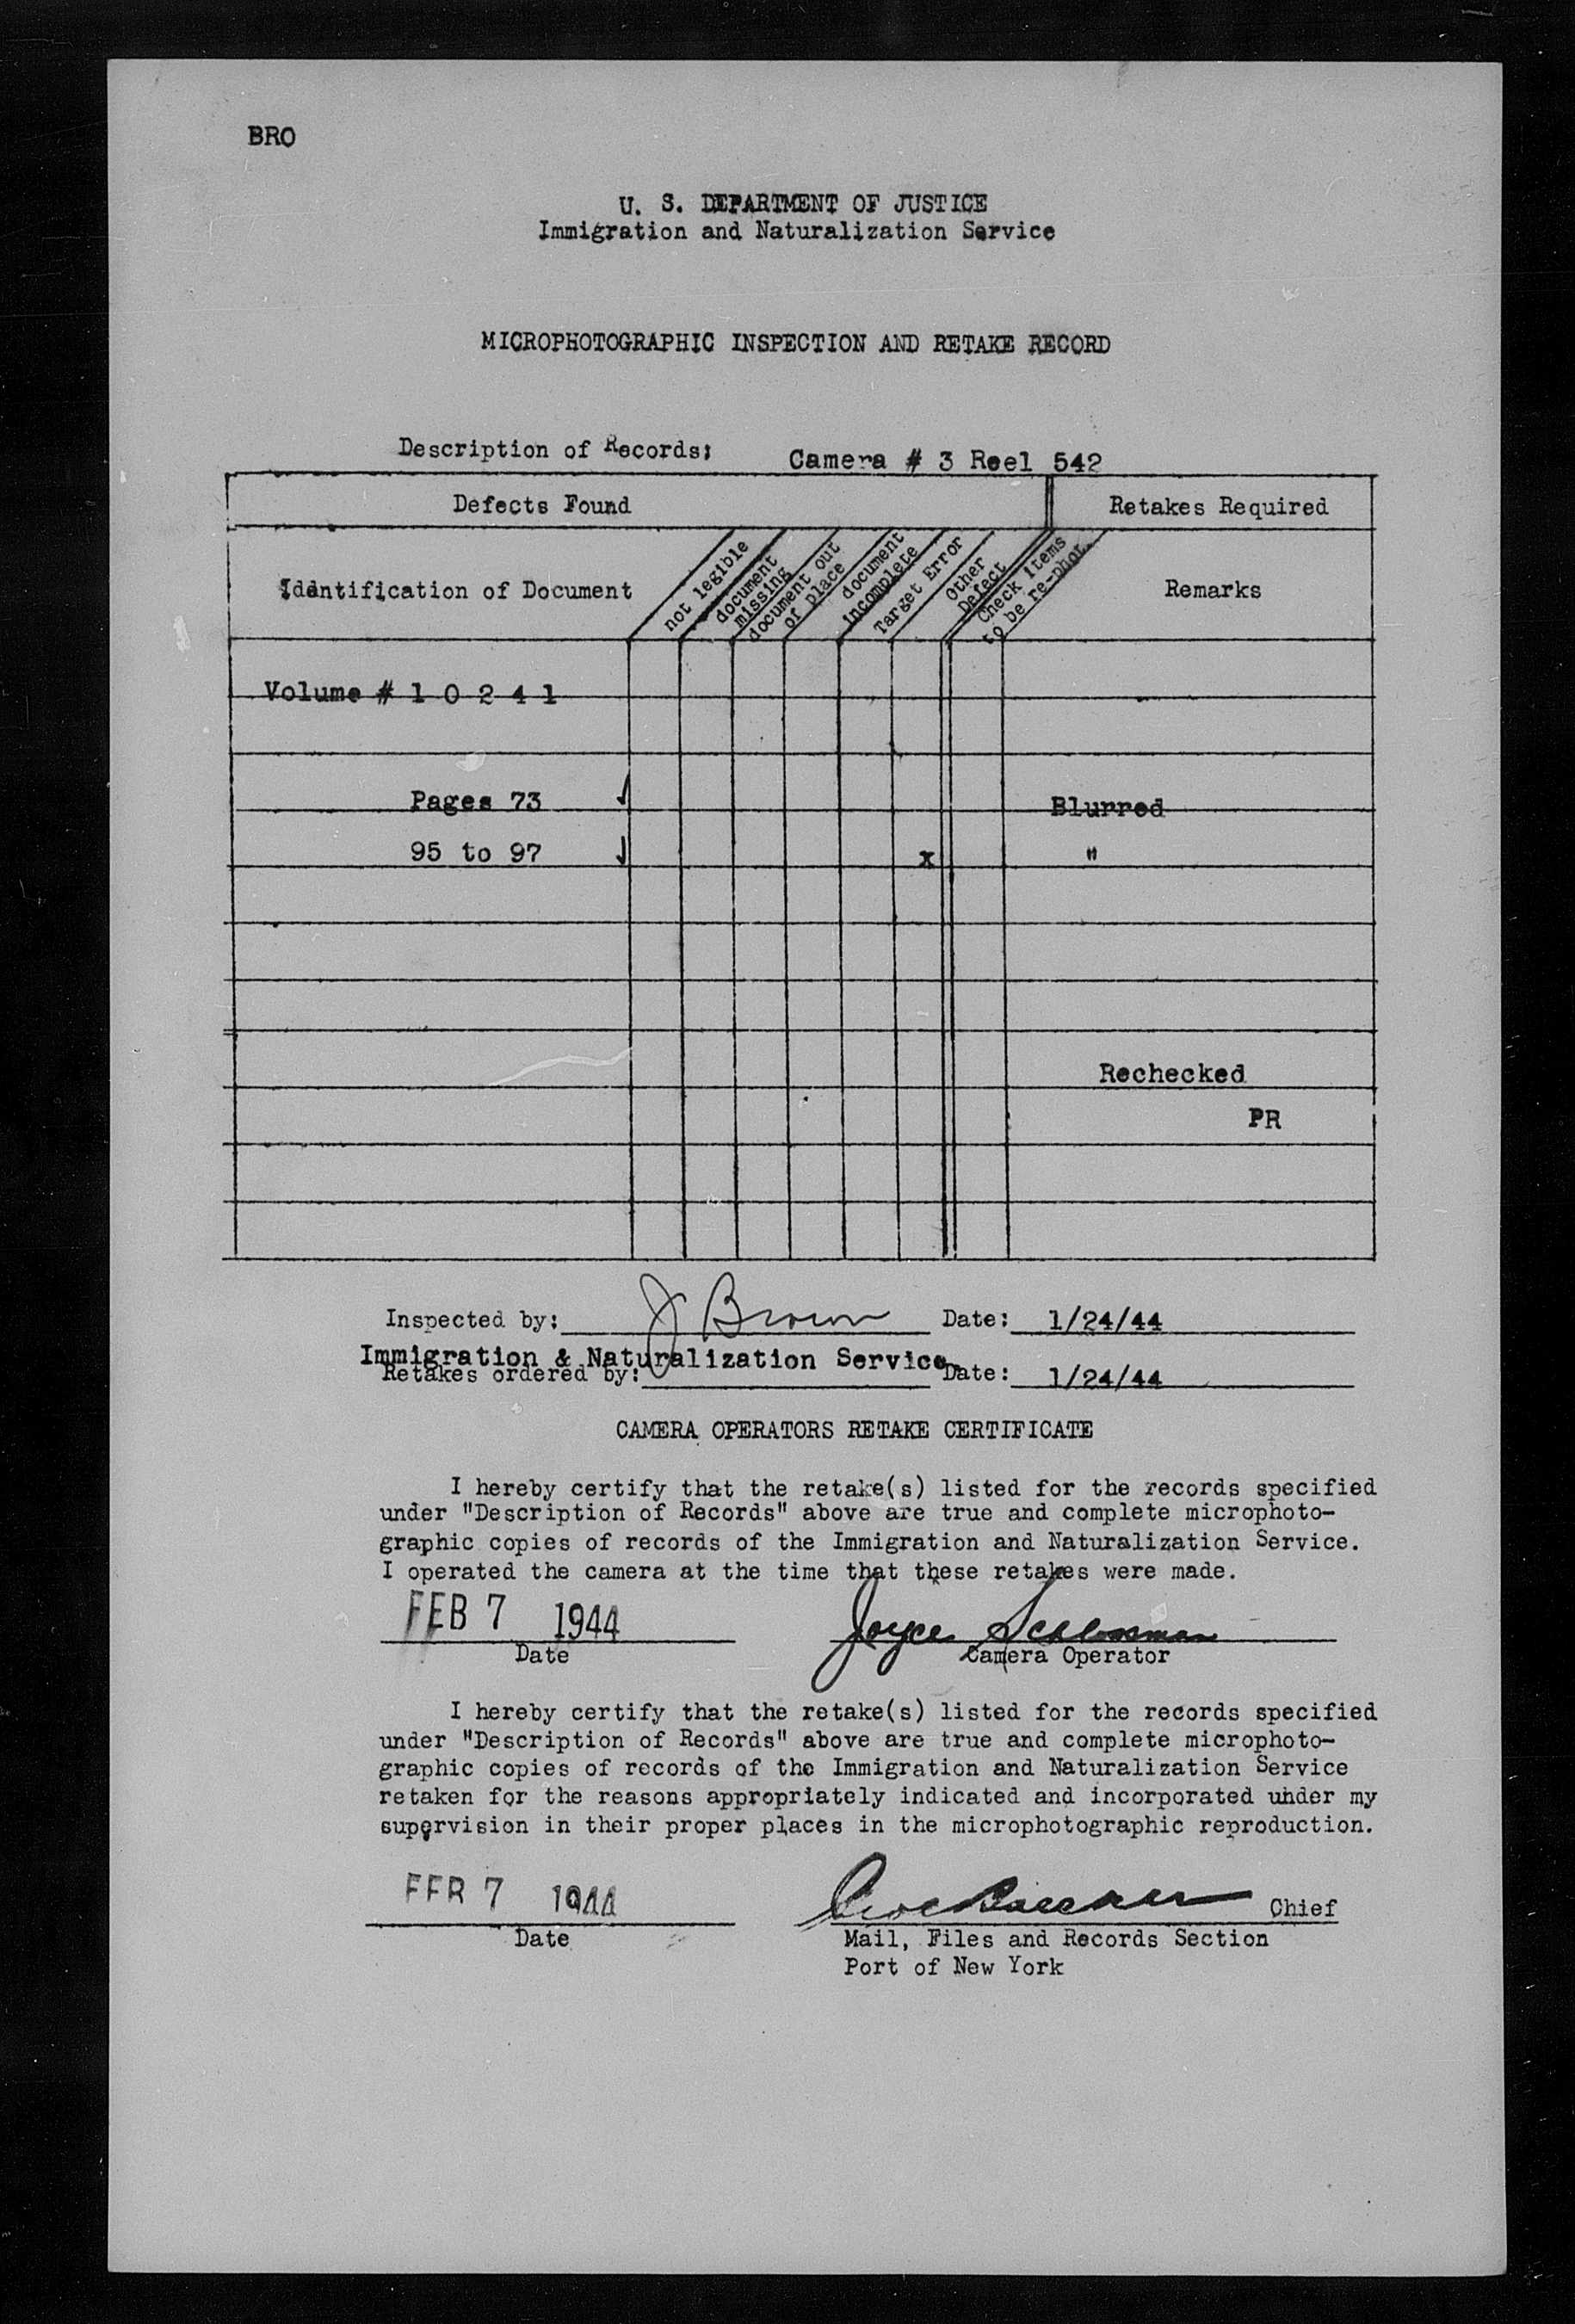 BRO
U. S. DEPARTMENT OF JUSTICE
Immigration and Naturalization Service
MICROPHOTOGRAPHIC INSPECTION AND RETAKE RECORD
Description of Records: Camera # 3 Reel 542
Defects Found Retakes Required
Identification of Document
not legible
document missing
document out of place
document incomplete
Target Error
Other Defect
Check items to be re-phot.
Remarks
Volume # 1 0 2 4 1
Pages 73 ✓ Blurred
95 to 97 ✓ x "
Rechecked
PR
Inspected by: J Brown Date: 1/24/44
Immigration & Naturalization Service
Retakes ordered by: Date: 1/24/44
CAMERA OPERATORS RETAKE CERTIFICATE
I hereby certify that the retake(s) listed for the records specified
under "Description of Records" above are true and complete microphoto-
graphic copies of records of the Immigration and Naturalization Service.
I operated the camera at the time that these retakes were made.
FEB 7 1944 Joyce Schlossman
Date Camera Operator
I hereby certify that the retake(s) listed for the records specified
under "Description of Records" above are true and complete microphoto-
graphic copies of records of the Immigration and Naturalization Service
retaken for the reasons appropriately indicated and incorporated under my
supervision in their proper places in the microphotographic reproduction.
FEB 7 1944 Chief
Date Mail, Files and Records Section
Port of New York